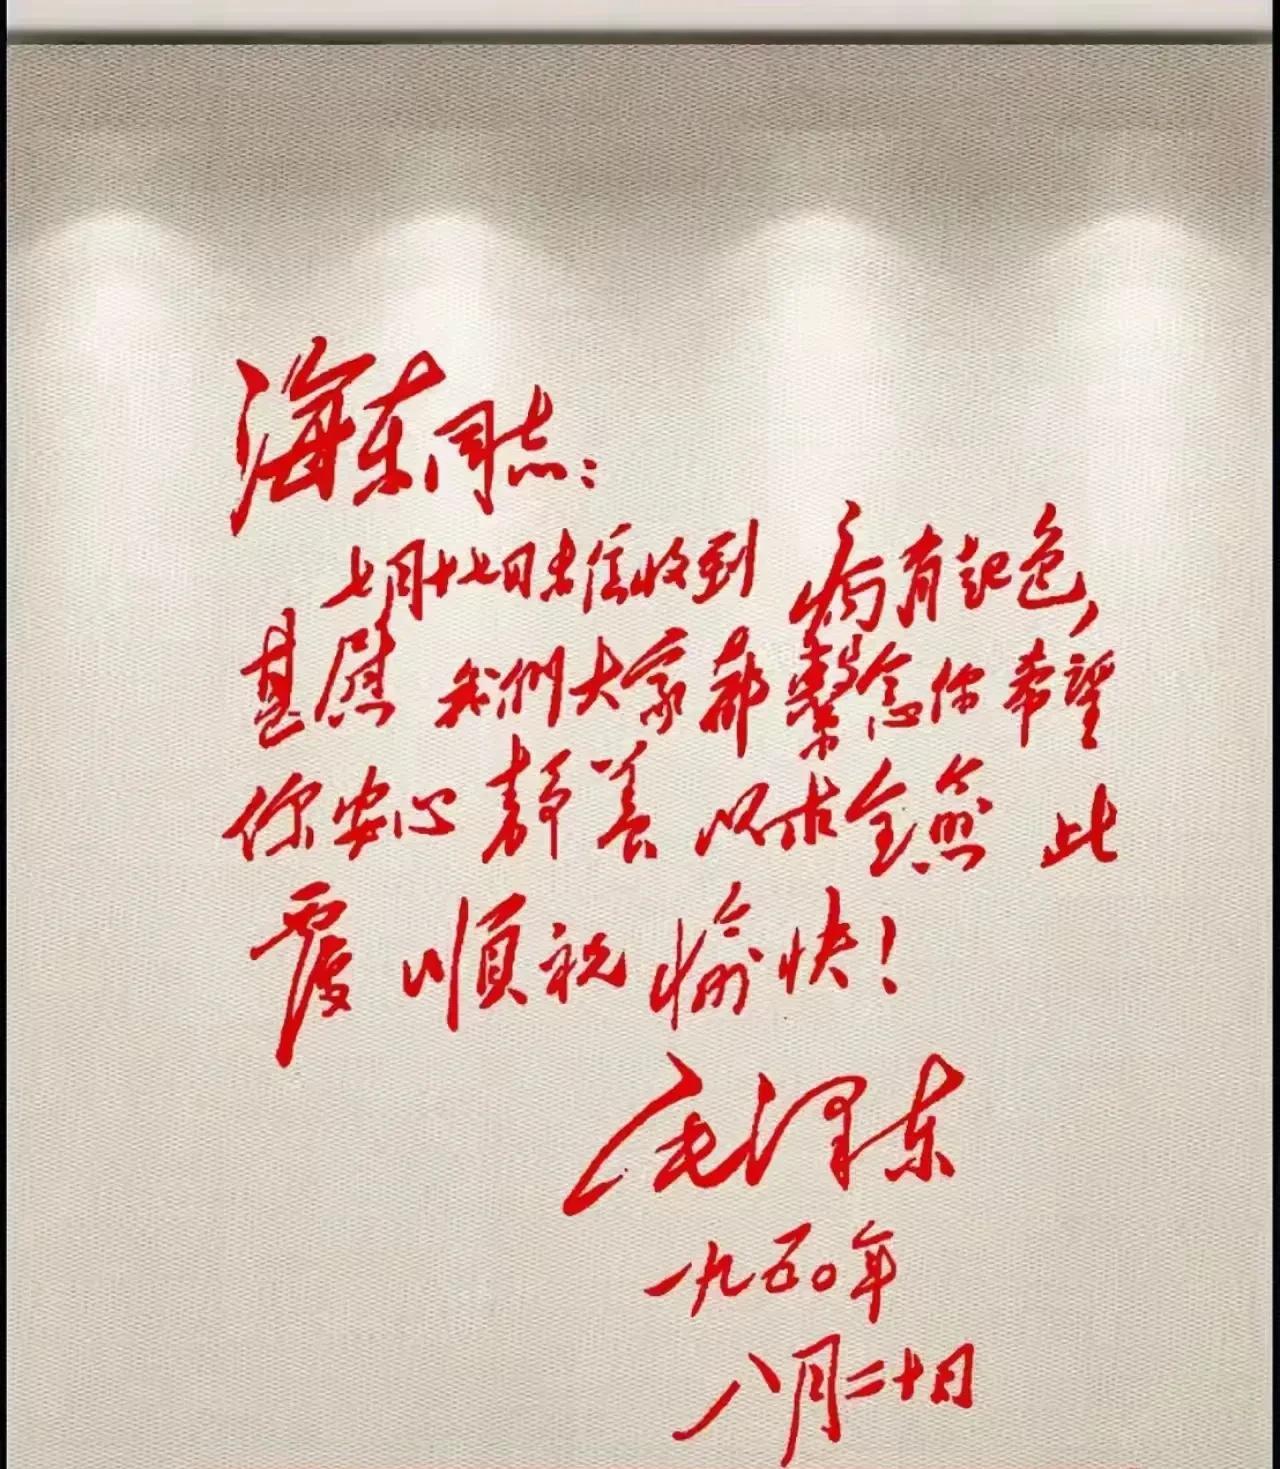 海东同志：
七月十七日来信收到 病有起色，
甚慰 我們大家都繫念你 希望
你安心静养 以求全愈 此
覆 順祝 愉快！
毛泽东
一九五〇年
八月二十日